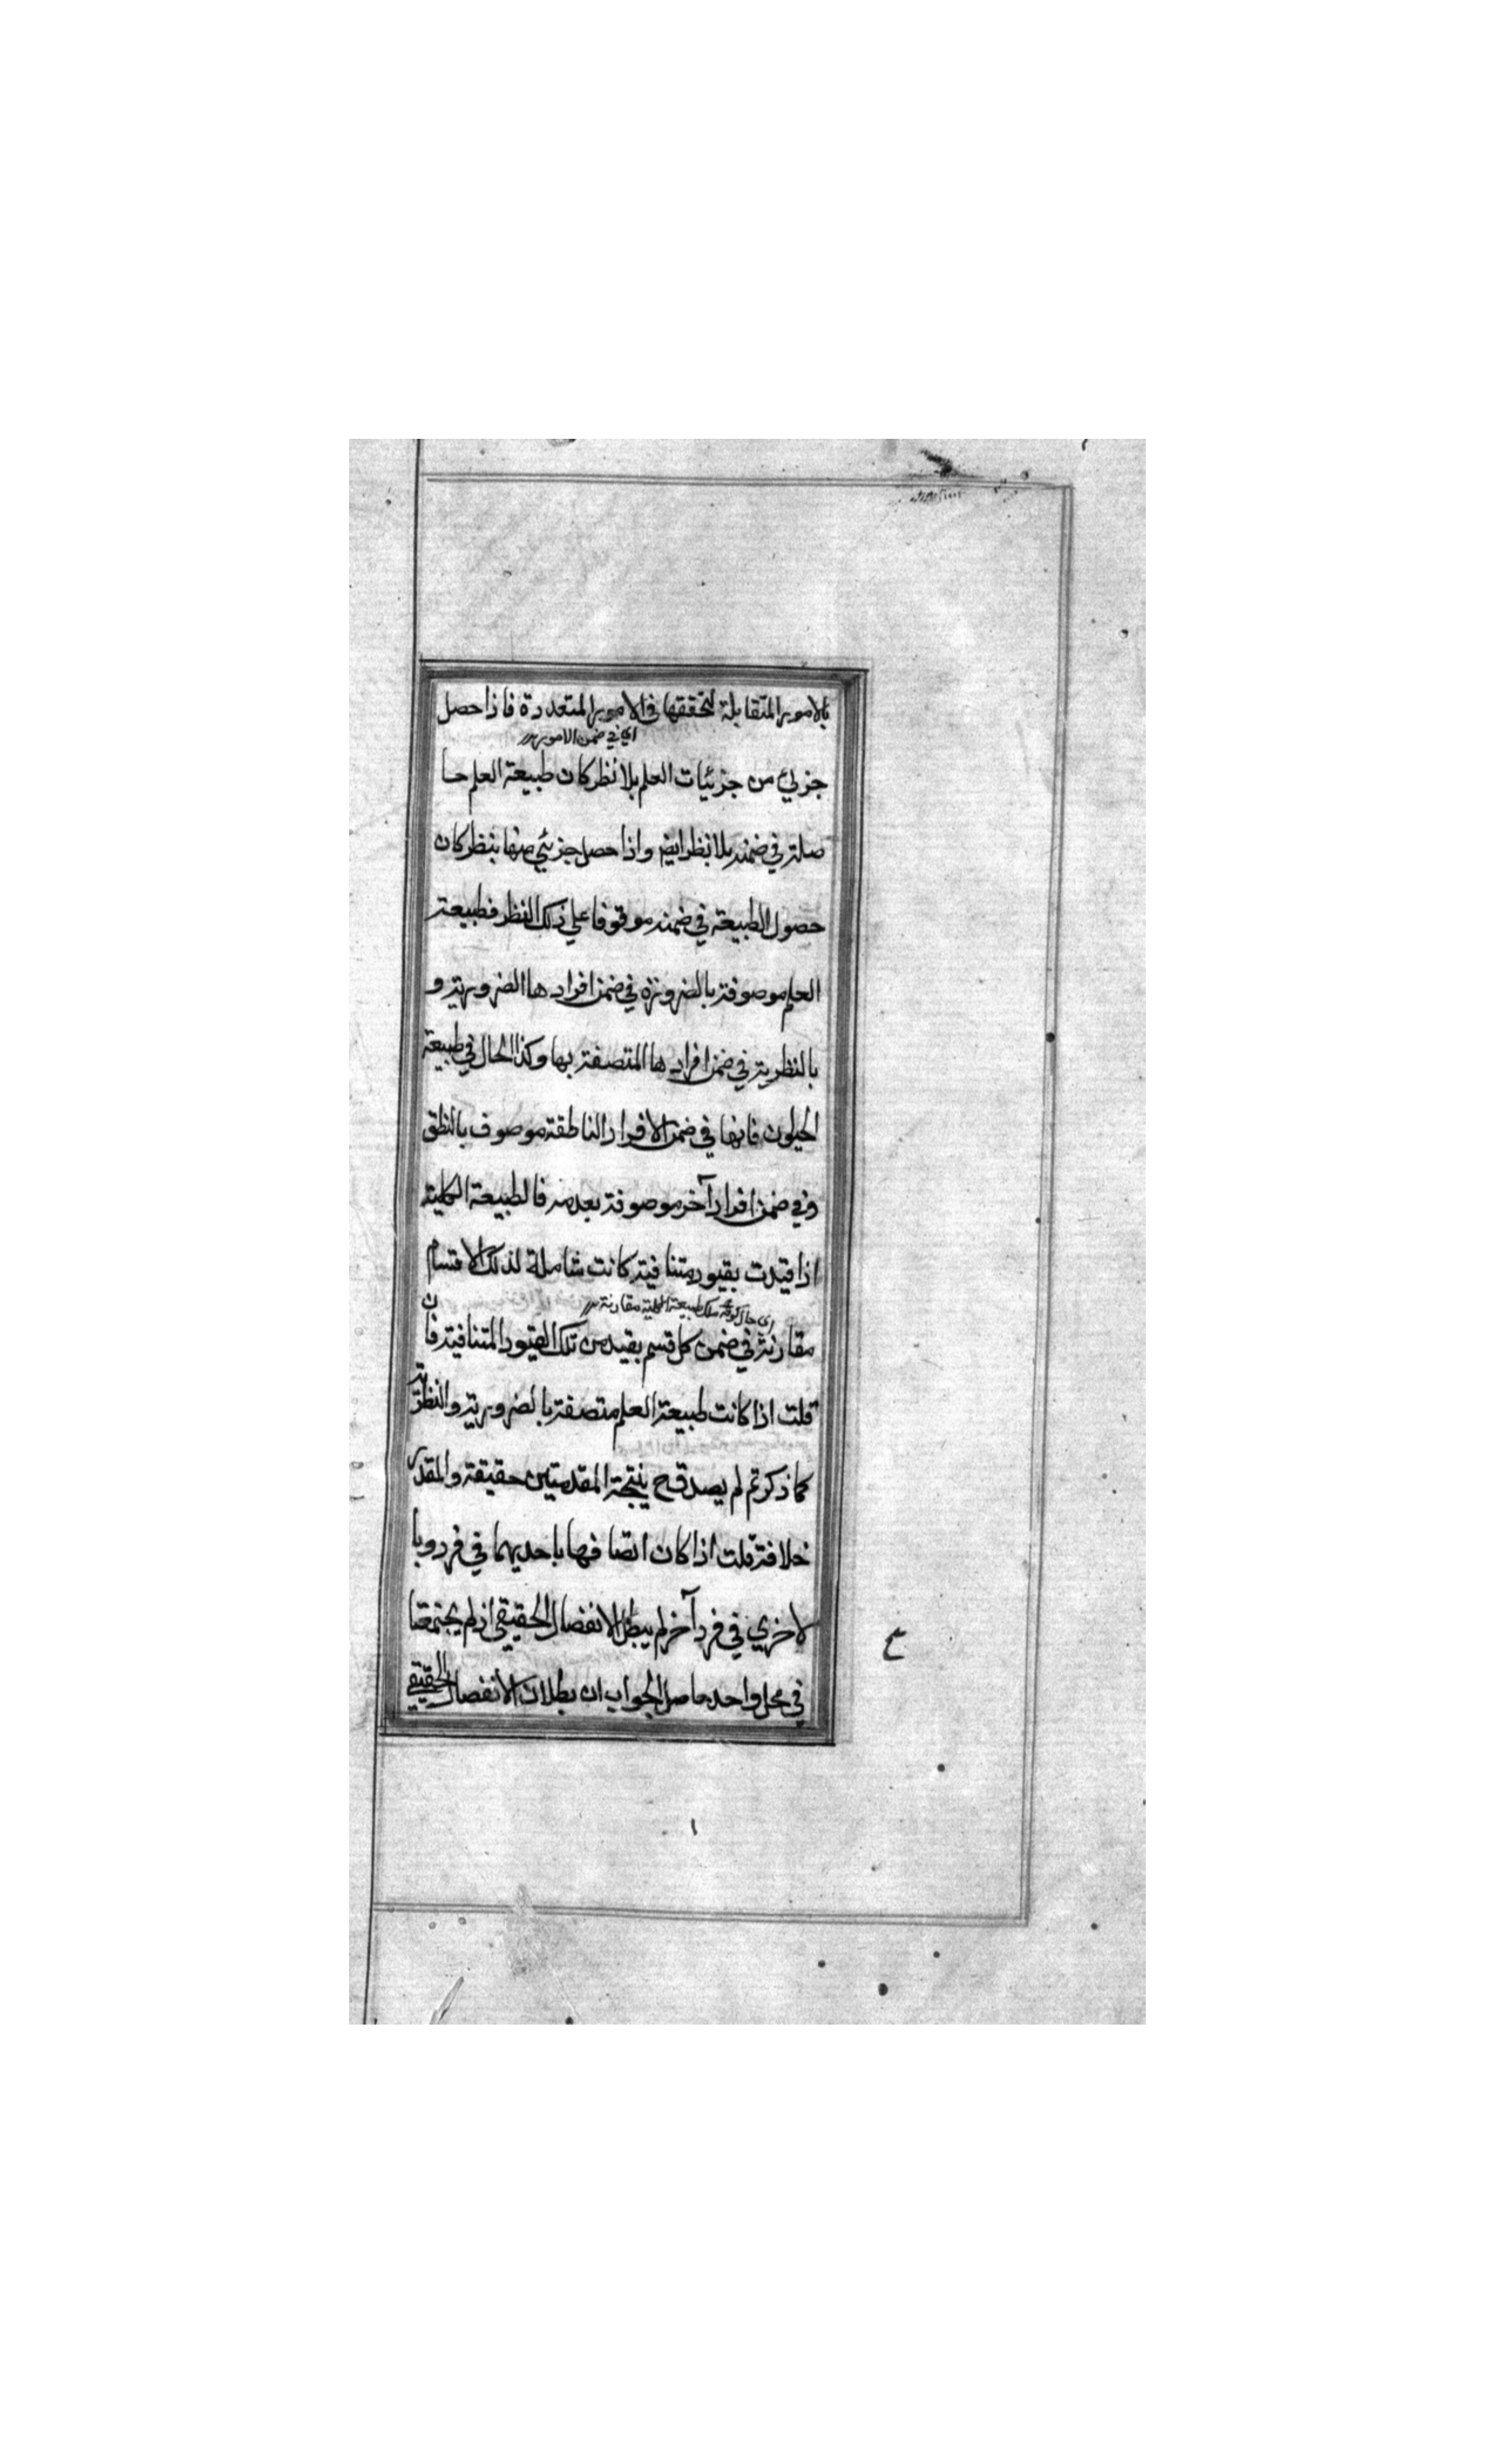 بالامور المتقابلة لتحققها فى الامور المتعددة فاذا حصل
اي في ضمن الامور
جزئي من جزئيات العلم بلا نظر كان طبيعة العلم حا
صلة في ضمنه بلا نظر ايض واذا حصل جزئي منها بنظر كان
حصول الطبيعة في ضمنه موقوفا علي ذلك النظر فطبيعة
العلم موصوفة بالضرورة في ضمن افرادها الضرورية و
بالنظرية في ضمن افرادها المتصفة بها وكذا الحال في طبيعة
الحيوان فانها في ضمن الافراد الناطقة موصوف بالنطق
وفي ضمن افراد آخر موصوفة بعدمه فالطبيعة الكلية
اذا قيدت بقيود متنافية كانت شاملة لذلك الاقسام
طبيعة الكلية مقارنة
مقارنة في ضمن كل قسم بقيد من تلك القيود المتنافية فان
قلت اذا كانت طبيعة العلم متصفة بالضرورية والنظرية
كما ذكرتم لم يصدق ح نتيجة المقدمتين حقيقة والمقدر
خلافة قلت اذا كان اتصافها باحديهما في فرد وبا
لاخري في فرد آخر لم يبطل الانفصال الحقيقي اذ لم يجتمعا
في محل واحد حاصل الجواب ان بطلان الانفصال الحقيقي
ع
١